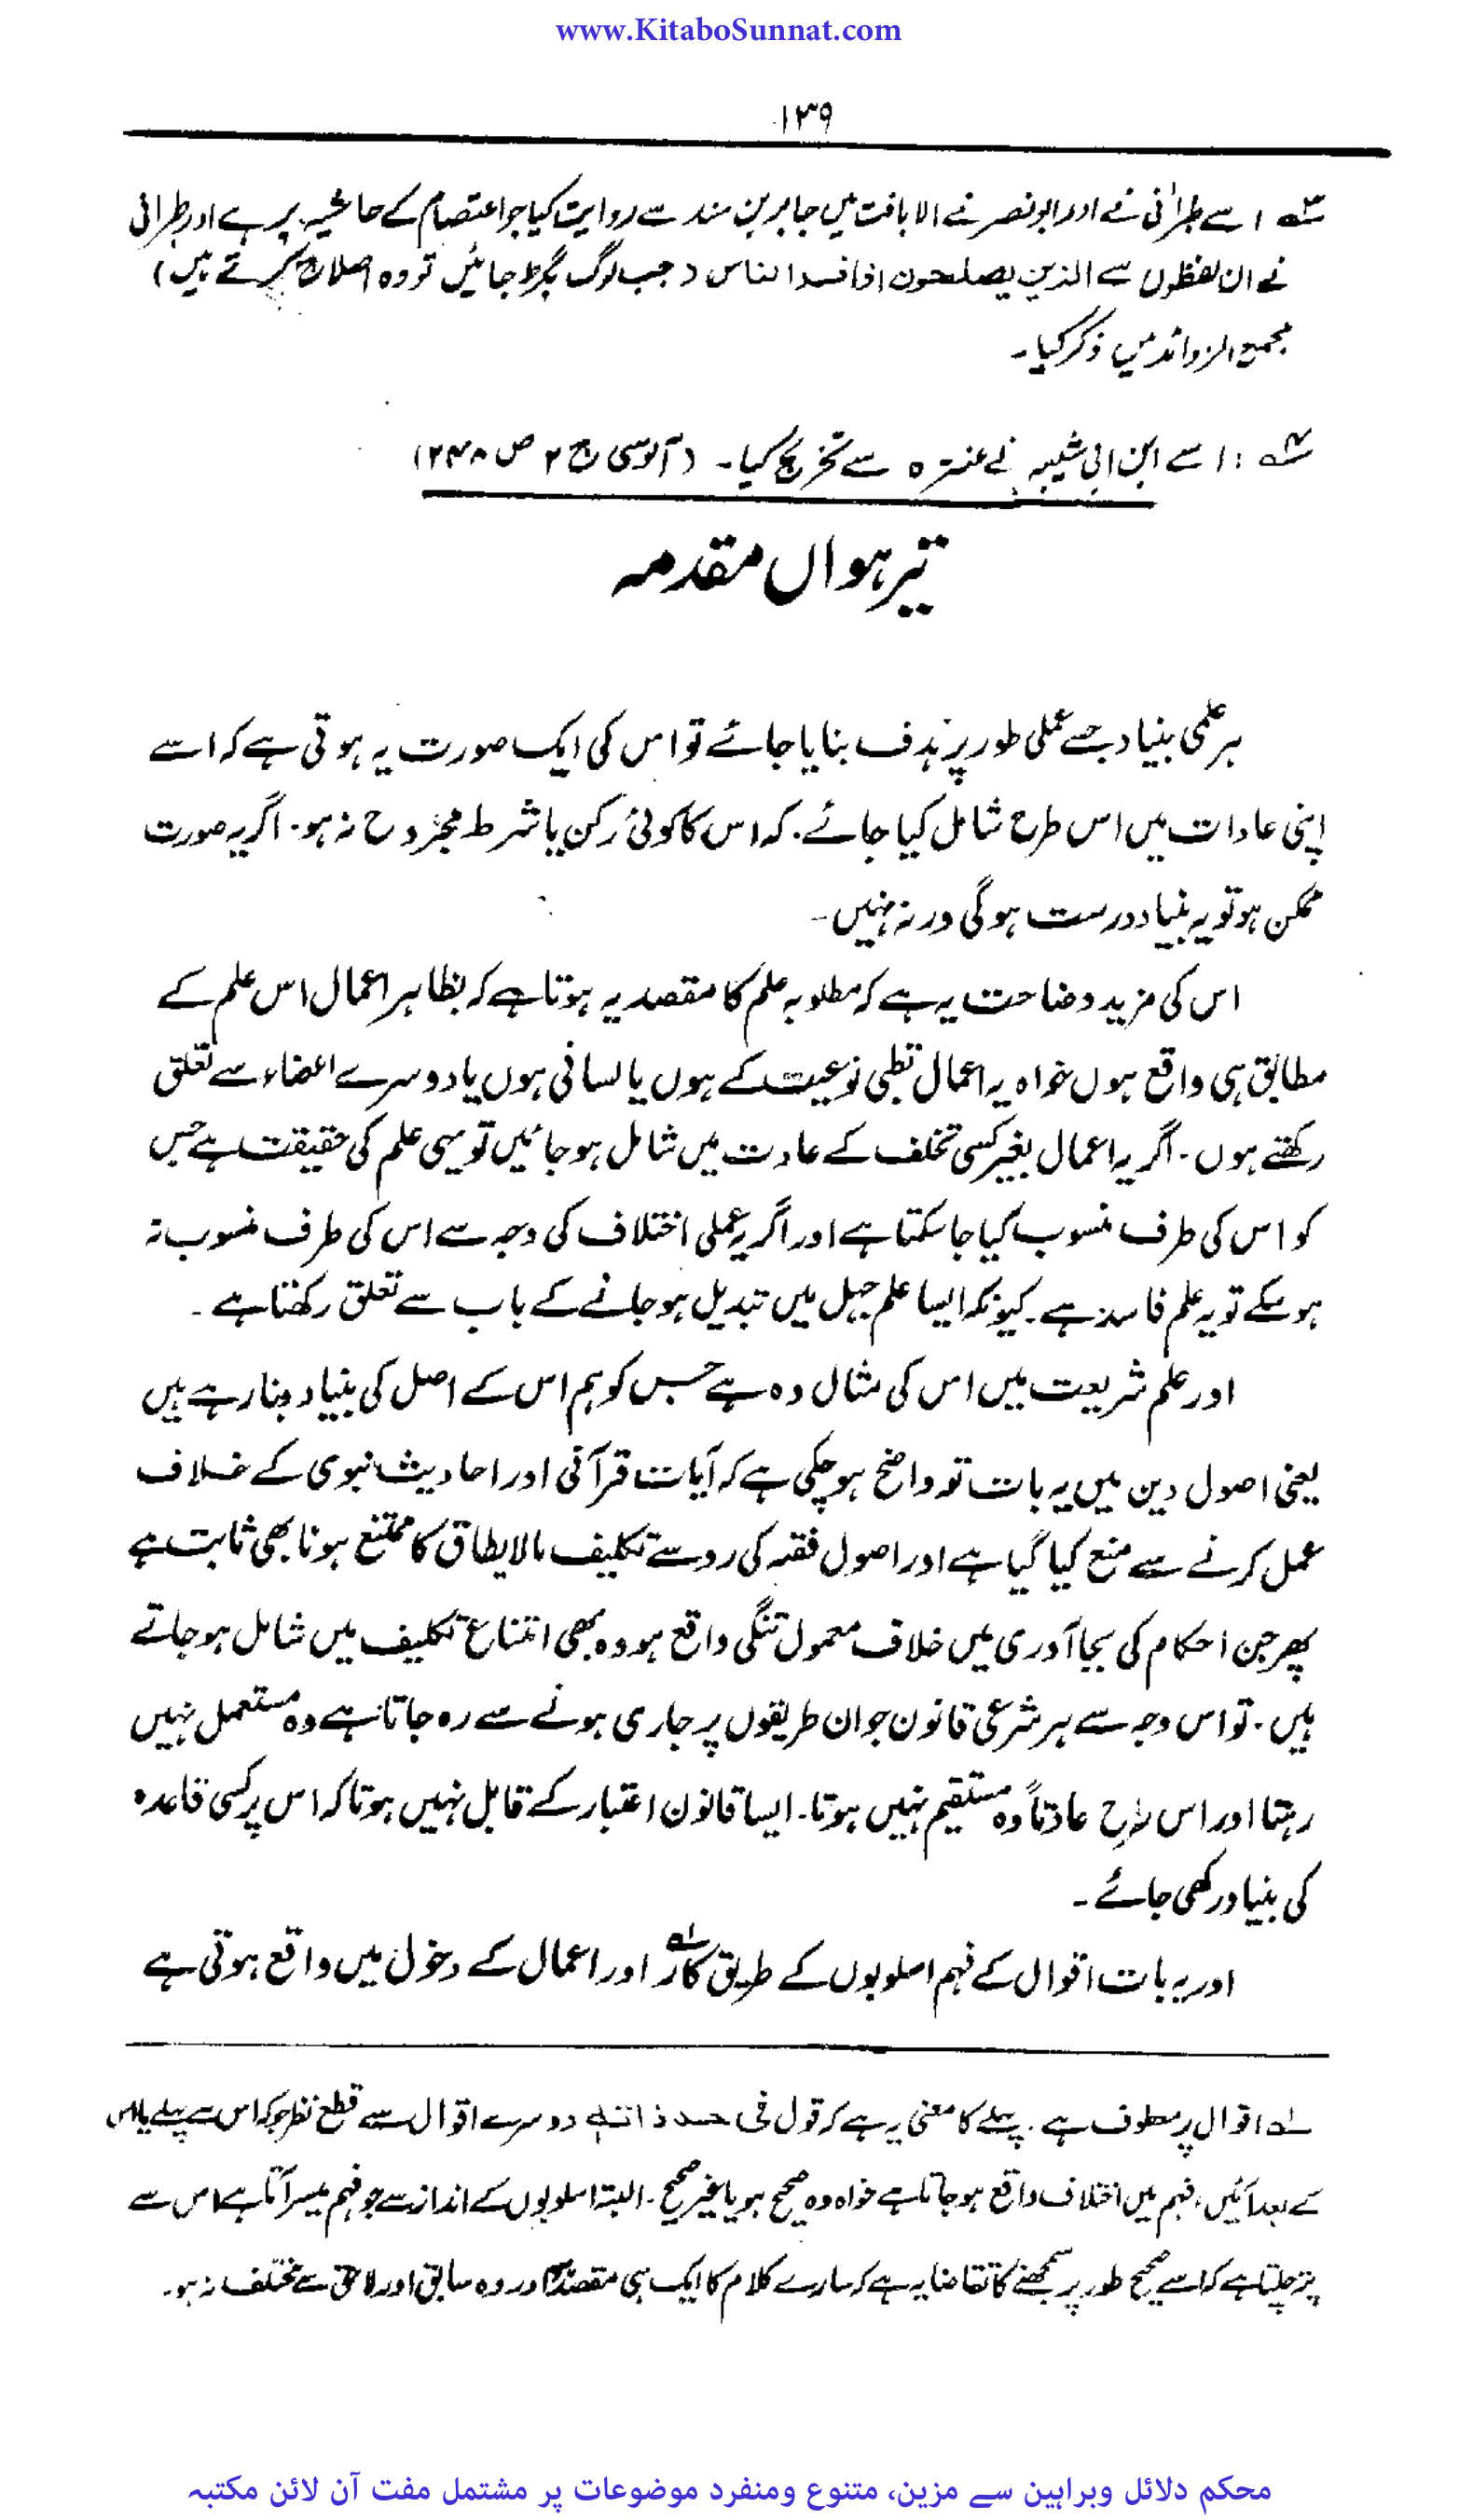 www.KitaboSunnat.com
۱۳۹
۳ے اسے طبرانی نے اور ابو نصر نے الابانت میں جابر بن سند سے روایت کیا جو اعتصام کے حاشیہ پر ہے اور طبرانی
نے ان لفظوں سے الذین یصلحون اذا فسد الناس (جب لوگ بگڑ جائیں تو وہ اصلاح کرتے ہیں)
مجمع الزوائد میں ذکر کیا۔
۴ے : اسے ابن ابی شیبہ نے عنترہ سے تخریج کیا۔ (آلوسی ج ۲ ص ۲۴۸)
تیرہواں مقدمہ
ہر علمی بنیاد جسے عملی طور پر ہدف بنایا جائے تو اس کی ایک صورت یہ ہوتی ہے کہ اسے
اپنی عادات میں اس طرح شامل کیا جائے۔ کہ اس کا کوئی رکن یا شرط مجروح نہ ہو۔ اگر یہ صورت
ممکن ہو تو یہ بنیاد درست ہوگی ورنہ نہیں۔
اس کی مزید وضاحت یہ ہے کہ مطلوبہ علم کا مقصد یہ ہوتا ہے کہ بظاہر اعمال اس علم کے
مطابق ہی واقع ہوں خواہ یہ اعمال قلبی نوعیت کے ہوں یا لسانی ہوں یا دوسرے اعضاء سے تعلق
رکھتے ہوں۔ اگر یہ اعمال بغیر کسی تخلف کے عادت میں شامل ہو جائیں تو یہی علم کی حقیقت ہے جس
کو اس کی طرف منسوب کیا جا سکتا ہے اور اگر یہ عملی اختلاف کی وجہ سے اس کی طرف منسوب نہ
ہو سکے تو یہ علم فاسد ہے۔ کیونکہ ایسا علم جہل میں تبدیل ہو جانے کے باب سے تعلق رکھتا ہے۔
اور علم شریعت میں اس کی مثال وہ ہے جس کو ہم اس کے اصل کی بنیاد بنا رہے ہیں
یعنی اصول دین میں یہ بات تو واضح ہو چکی ہے کہ آیات قرآنی اور احادیث نبوی کے خلاف
عمل کرنے سے منع کیا گیا ہے اور اصول فقہ کی رو سے تکلیف مالایطاق کا ممتنع ہونا بھی ثابت ہے
پھر جن احکام کی بجا آوری میں خلاف معمول تنگی واقع ہو وہ بھی امتناع تکلیف میں شامل ہو جاتے
ہیں۔ تو اس وجہ سے ہر شرعی قانون جو ان طریقوں پر جاری ہونے سے رہ جاتا ہے وہ مستعمل نہیں
رہتا اور اس طرح عادتاً وہ مستقیم نہیں ہوتا۔ ایسا قانون اعتبار کے قابل نہیں ہوتا کہ اس پر کسی قاعدہ
کی بنیاد رکھی جائے۔
اور یہ بات اقوال کے فہم اسلوبوں کے طریق کار۱ے اور اعمال کے دخول میں واقع ہوتی ہے
۱ے اقوال پر معطوف ہے۔ پہلے کا معنی یہ ہے کہ قول فی حد ذاتہ دوسرے اقوال سے قطع نظر جو کہ اس سے پہلے یا اس
کے بعد آئیں، فہم میں اختلاف واقع ہو جاتا ہے خواہ وہ صحیح ہو یا غیر صحیح۔ البتہ اسلوبوں کے انداز سے جو فہم میسر آتا ہے اس سے
پتہ چلتا ہے کہ اسے صحیح طور پر سمجھنے کا تقاضا یہ ہے کہ سارے کلام کا ایک ہی مقصد ہو اور وہ سابق اور لاحق سے مختلف نہ ہو۔
محکم دلائل وبراہین سے مزین، متنوع ومنفرد موضوعات پر مشتمل مفت آن لائن مکتبہ